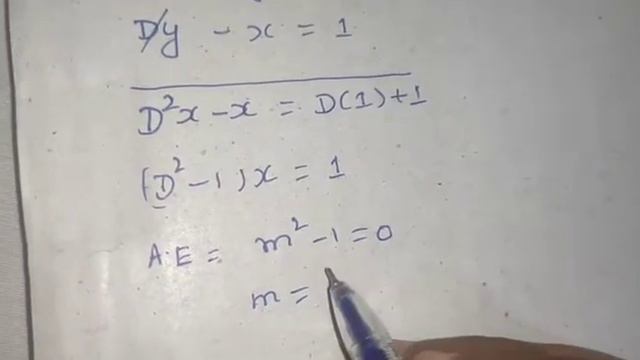 Dy - x = 1
D²x - x = D(1) + 1
(D² - 1)x = 1
A.E = m² - 1 = 0
m =